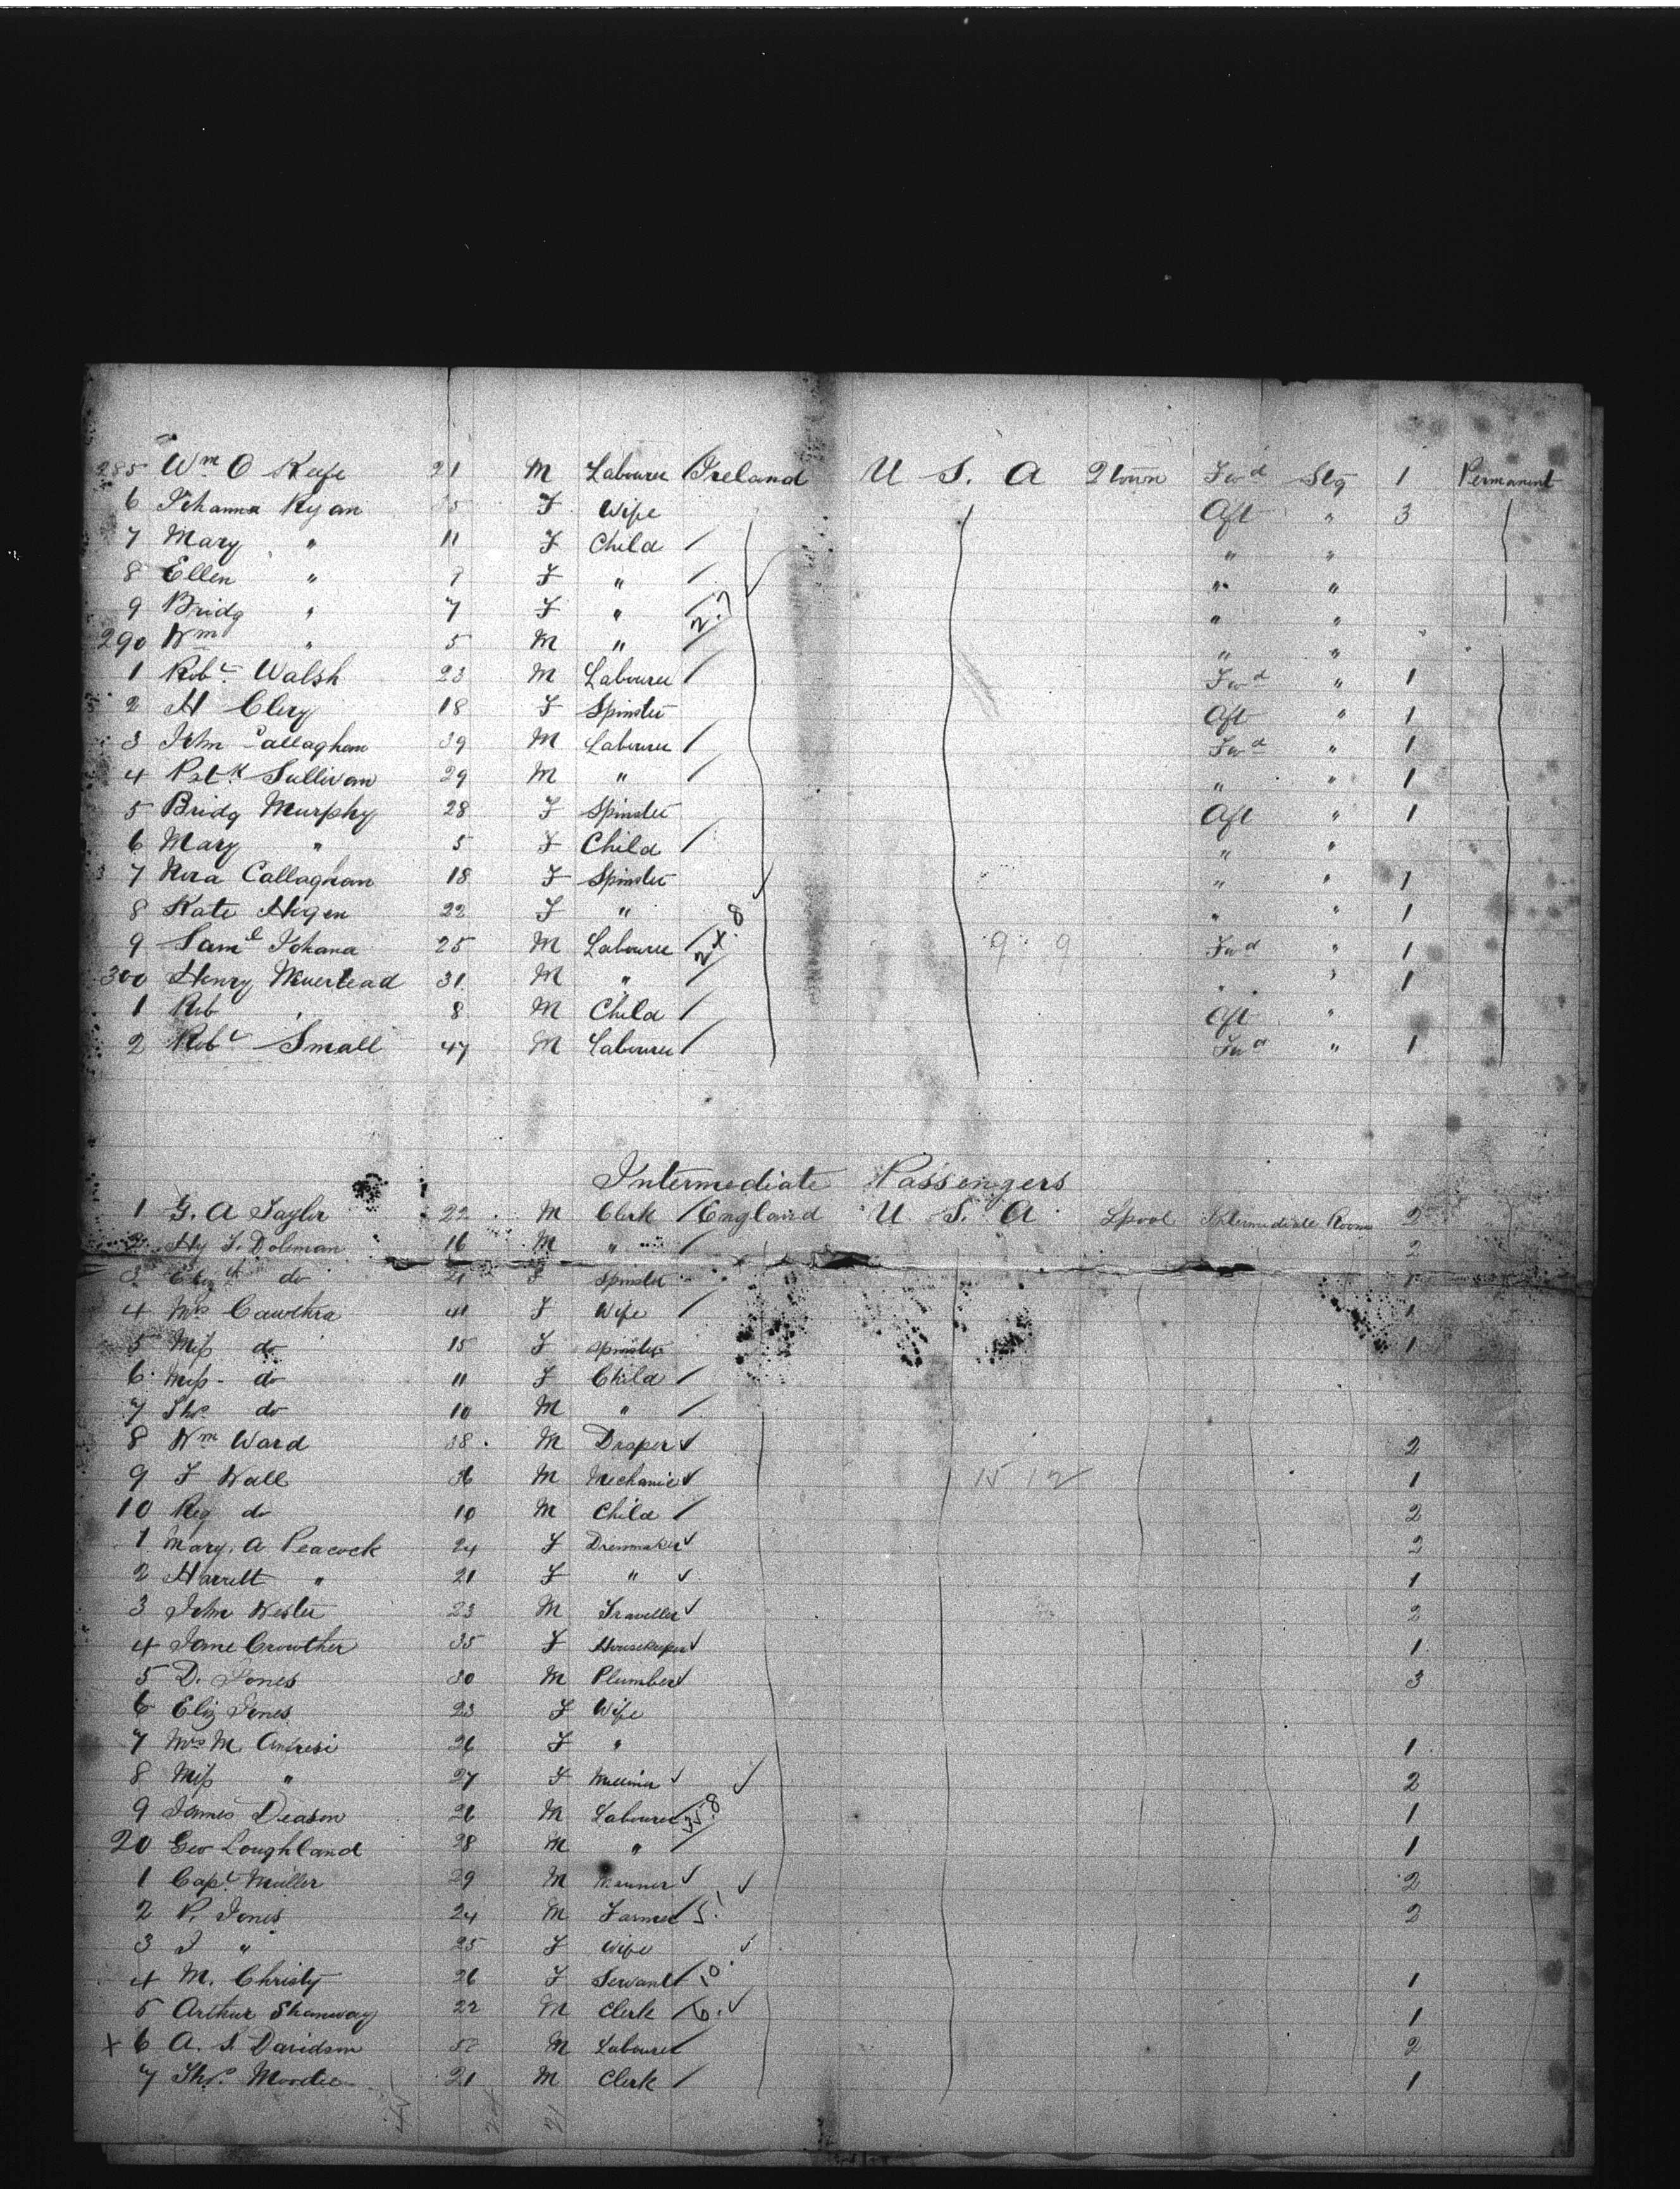 285 Wm O Keefe 21 M Labourer Ireland U S. A Qtown Fwd Stg 1 Permanent
6 Johanna Ryan 35 F Wife Aft " 3
7 Mary " 11 F Child / " "
8 Ellen " 9 F " / " "
9 Bridg " 7 F " / " "
290 Wm " 5 M " / " "
1 Robt Walsh 23 M Labourer / Fwd " 1
2 H Clery 18 F Spinster Aft " 1
3 John Callaghan 39 M Labourer / Fwd " 1
4 Patk Sullivan 29 M " / " " 1
5 Bridg Murphy 28 F Spinster Aft " 1
6 Mary " 5 F Child / " "
7 Nora Callaghan 18 F Spinster " " 1
8 Kate Hogen 22 F " " " 1
9 Saml Johana 25 M Labourer / 9 9 Fwd " 1
300 Henry Muerhead 31 M " / " " 1
1 Rob " 8 M Child / Aft "
2 Robt Small 47 M Labourer / Fwd " 1
Intermediate Passengers
1 G. A Taylor 22 M Clerk / England U. S. A Lpool Intermediate Room 2
2 Hy F. Doleman 16 M " / 2
3 Eliz do 21 F Spinster 1
4 Mrs Cawthra 41 F Wife / 1
5 Miss do 15 F Spinster 1
6 Miss do 11 F Child /
7 Thos do 10 M " /
8 Wm Ward 38 M Draper ✓ 2
9 F Wall 36 M Mechanic ✓ 15 12 1
10 Reg do 10 M Child / 2
1 Mary. A Peacock 24 F Dressmaker ✓ 2
2 Harrett " 21 F " ✓ 1
3 John Wester 23 M Traveller ✓ 2
4 Jane Crowther 35 F Housekeeper ✓ 1
5 D. Jones 30 M Plumber ✓ 3
6 Eliz Jones 23 F Wife
7 Mrs M 26 F " 1
8 Miss " 27 F Milliner ✓ 2
9 James Deason 26 M Labourer 35.8 1
20 Geo Loughland 28 M " 1
1 Capt Muller 29 M Mariner ✓ 2
2 P. Jones 24 M Farmer 2
3 J " 25 F Wife
4 M. Christy 26 F Servant / 10. 1
5 Arthur Shanway 22 M Clerk / 6. 1
X 6 A. S. Davidson M Labourer 2
7 Thos. Moodie 21 M Clerk / 1